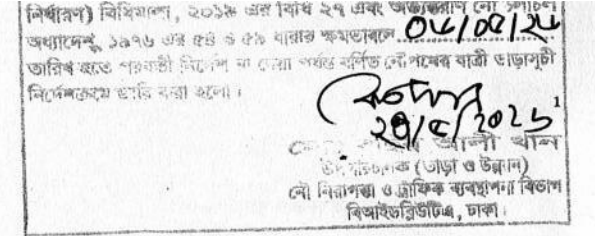 নির্ধারণ) বিধিমালা, ২০১৯ এর বিধি ২৭ এবং অভ্যন্তরীণ নৌ চলাচল
অধ্যাদেশ, ১৯৭৬ এর ৫৪ ও ৫৯ ধারার ক্ষমতাবলে
তারিখ হতে পরবর্তী নির্দেশ না দেয়া পর্যন্ত বর্ণিত নৌ পথের যাত্রী ভাড়াসূচী
নির্দেশক্রমে জারি করা হলো।
আলী খান
উপ-পরিচালক (ভাড়া ও উন্নয়ন)
নৌ নিরাপত্তা ও ট্রাফিক ব্যবস্থাপনা বিভাগ
বিআইডব্লিউটিএ, ঢাকা।